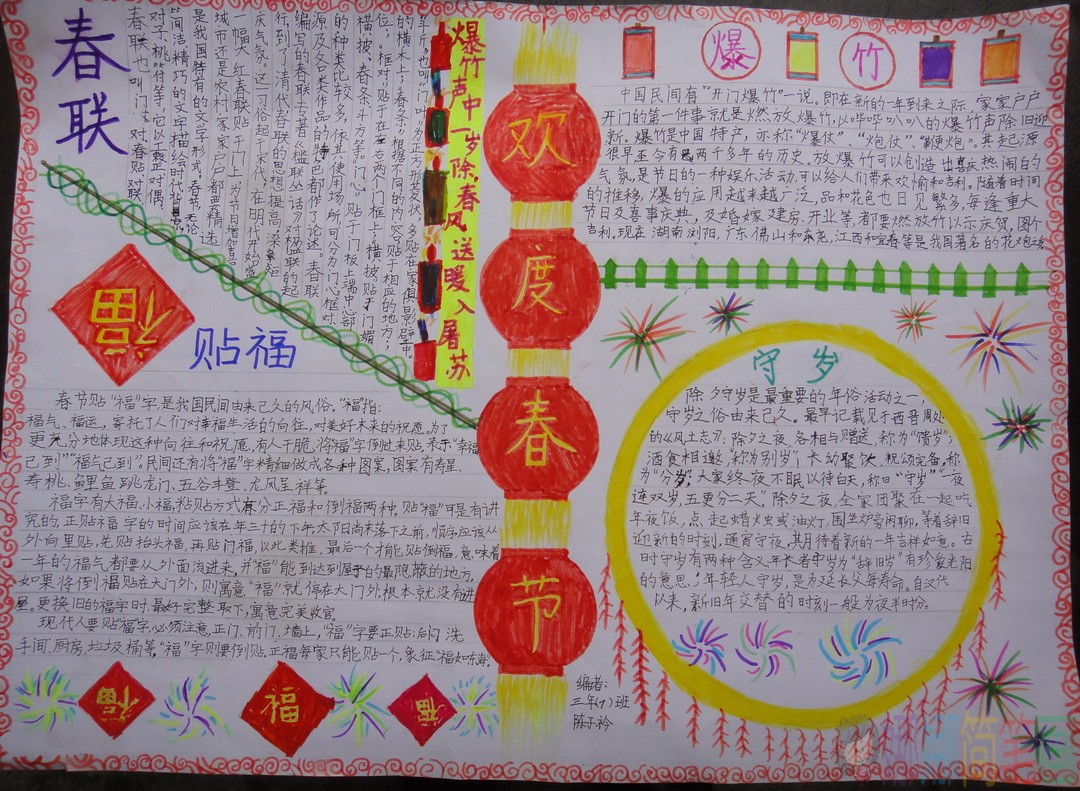 春联
春联也叫门对、春贴、对联、
对子、桃符等，它以工整、对偶、
简洁精巧的文字描绘时代背景
是我国特有的文字形式。春节，无论
城市还是农村，家家户户都要精选
一幅大红春联贴于门上，为节日增加喜
庆气氛。这一习俗起于宋代，在明代开始盛
行，到了清代春联的思想提高
编写的春联专著《楹联丛话》对楹联的起
源及各类作品的特色都作了论述。春联
的种类比较多，依其使用场所，可分为门心、框对、
横披、春条、斗方等。门心，贴于门板上端中心部
位，“框对”贴于左右两个门框上，横披贴于门楣
的横木上，“春条”根据不同的内容贴于相应的地方；
“斗斤”也叫“门叶”，为正方形菱状，多贴在家俱、影壁中。
爆竹声中一岁除，春风送暖入屠苏
欢度春节
爆竹
中国民间有“开门爆竹”一说。即在新的一年到来之际，家家户户
开门的第一件事就是燃放爆竹，以哔哔叭叭的爆竹声除旧迎
新。爆竹是中国特产，亦称“爆仗”、“炮仗”、“鞭炮”。其起源
很早，至今有两千多年的历史。放爆竹可以创造出喜庆热闹的
气氛，是节日的一种娱乐活动，可以给人们带来欢愉和吉利。随着时间
的推移，爆的应用越来越广泛，品和花色也日见繁多，每逢重大
节日及喜事庆典，及婚嫁、建房、开业等，都要燃放竹以示庆贺，图个
吉利。现在，湖南浏阳，广东佛山和东尧，江西和宜春等是我国著名的花炮之
福
贴福
春节贴“福”字，是我国民间由来已久的风俗。“福”指：
福气、福运，寄托了人们对幸福生活的向往，对美好未来的祝愿。为了
更充分地体现这种向往和祝愿，有人干脆将福字倒过来贴，表示“幸福
已到”“福气已到”。民间还有将“福”字精细做成各种图案，图案有寿星、
寿桃、鲤鱼跳龙门、五谷丰登、龙凤呈祥等。
福字有大福、小福，粘贴方式有分正福和倒福两种，贴“福”可是有讲
究的，正贴福字的时间应该在年三十的下午太阳尚未落下之前，顺序应该从
外向里贴，先贴抬头福，再贴门福，以此类推，最后一个才能贴倒福，意味着
一年的福气都要从外面流进来，并“福”能到达到屋子的最隐蔽的地方，
如果将倒福贴在大门外，则寓意“福”就停在大门外，根本就没有进
屋。更换旧的福字时，最好完整取下，寓意完美收官。
现代人要贴福字，必须注意，正门、前门、墙上，“福”字要正贴；后门、洗
手间、厨房、垃圾桶等，“福”字则要倒贴，正福每家只能贴一个，象征“福如东海”。
福
福
福
守岁
除夕守岁是最重要的年俗活动之一，
守岁之俗由来已久。最早记载见于西晋周处
的《风土志》：除夕之夜，各相与赠送，称为“馈岁”；
酒食相邀，称为别岁”；长幼聚饮，祝颂完备，称
为“分岁”；大家终夜不眠，以待白天，称曰“守岁”“一夜
连双岁，五更分二天”除夕之夜，全家团聚在一起吃
年夜饭，点起蜡火虫或油灯，围坐炉旁闲聊，等着辞旧
迎新的时刻，通宵守夜，其月待着新的一年吉祥如意。古
时守岁有两种含义：年长者守岁为“辞旧岁”有珍爱光阳
的意思！年轻人守岁，是为延长父母寿命。自汉代
以来，新旧年交替的时刻一般为夜半时份。
编者：
三年(1)班
陈子衿
简笔画